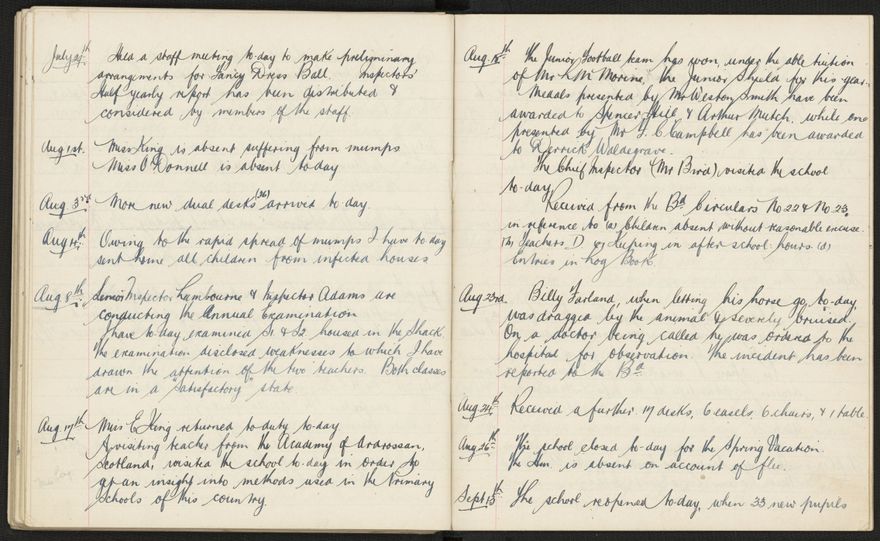 July 27th Held a staff meeting to-day to make preliminary
arrangements for Fancy Dress Ball. Inspectors'
Half yearly report has been distributed &
considered by members of the staff.
Aug 1st. Miss King is absent suffering from mumps
Miss O'Donnell is absent to-day
Aug 3rd More new dual desks (26) arrived to-day.
Aug 4th Owing to the rapid spread of mumps I have to-day
sent home all children from infected houses
Aug 8th Senior Inspector Lambourne & Inspector Adams are
conducting the Annual Examination
I have to-day examined S1 & S2 housed in the Shack.
The examination disclosed weaknesses to which I have
drawn the attention of the two teachers. Both classes
are in a "satisfactory" state.
Aug 17th Miss E King returned to duty to-day
A visiting teacher from the Academy of Ardrossan,
Scotland, visited the school to-day in order to
get an insight into methods used in the Primary
Schools of this country.
Aug 18th The Junior Football team has won, under the able tuition
of Mr L W Morine, the Junior Shield for this year.
Medals presented by Mr Weston Smith have been
awarded to Spencer Hill, & Arthur Mutch, while one
presented by Mr J. C. Campbell has been awarded
to Derrick Waldegrave.
The Chief Inspector (Mr Bird) visited the school
to-day
Received from the Bd Circulars No 22 & No 23,
in reference to (a) Children absent without reasonable excuse.
(b) Teachers D (c) Keeping in after school hours (d)
Entries in Log Book.
Aug 23rd. Billy Farland, when letting his horse go, to-day,
was dragged by the animal & severely bruised.
On a doctor being called he was ordered to the
hospital for observation. The incident has been
reported to the Bd
Aug 24th Received a further 17 desks, 6 easels, 6 chairs, & 1 table
Aug 26th The school closed to-day for the Spring Vacation.
The Hm. is absent on account of flu.
Sept 13th The school reopened to-day, when 33 new pupils